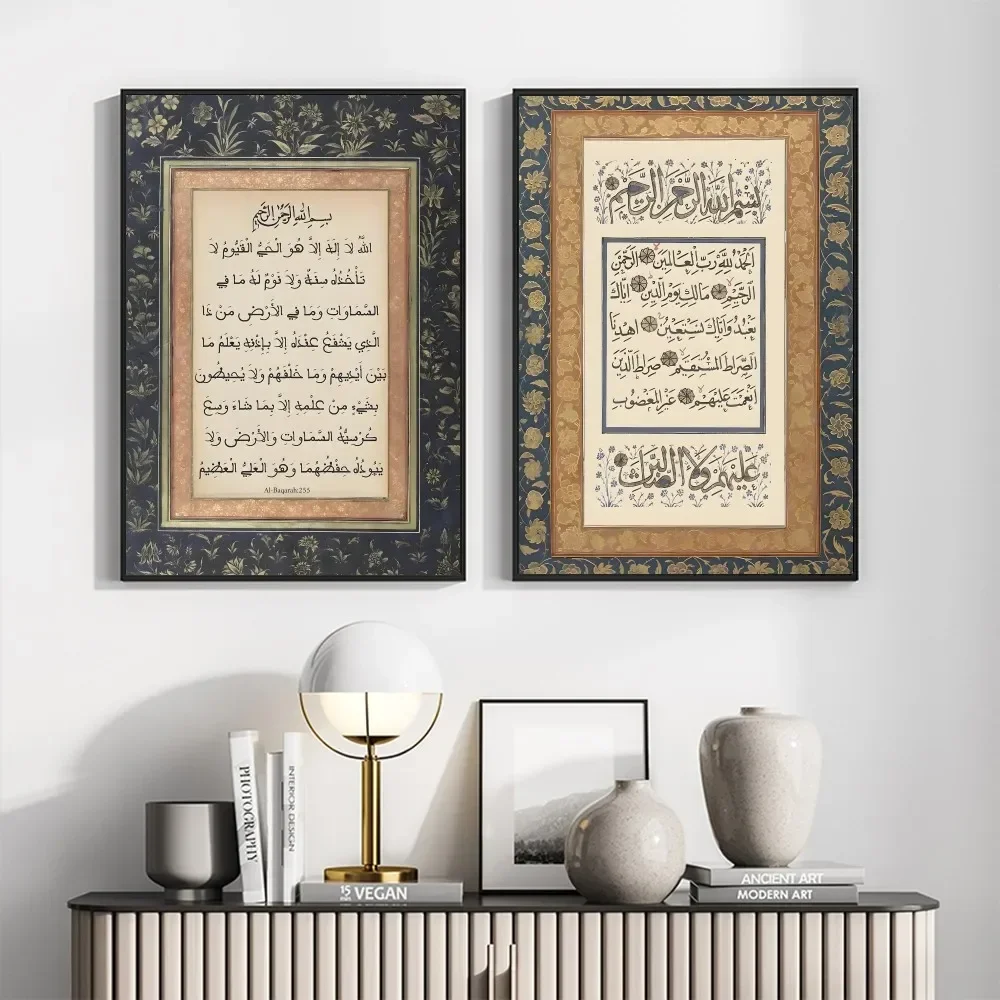 بسم الله الرحمن الرحيم
اللَّهُ لَا إِلَهَ إِلَّا هُوَ الْحَيُّ الْقَيُّومُ لَا
تَأْخُذُهُ سِنَةٌ وَلَا نَوْمٌ لَهُ مَا فِي
السَّمَاوَاتِ وَمَا فِي الْأَرْضِ مَنْ ذَا
الَّذِي يَشْفَعُ عِنْدَهُ إِلَّا بِإِذْنِهِ يَعْلَمُ مَا
بَيْنَ أَيْدِيهِمْ وَمَا خَلْفَهُمْ وَلَا يُحِيطُونَ
بِشَيْءٍ مِنْ عِلْمِهِ إِلَّا بِمَا شَاءَ وَسِعَ
كُرْسِيُّهُ السَّمَاوَاتِ وَالْأَرْضَ وَلَا
يَئُودُهُ حِفْظُهُمَا وَهُوَ الْعَلِيُّ الْعَظِيمُ
Al-Baqarah:255
بِسْمِ اللَّهِ الرَّحْمَنِ الرَّحِيمِ
اَلْحَمْدُ لِلَّهِ رَبِّ الْعَالَمِينَ الرَّحْمَنِ
الرَّحِيمِ مَالِكِ يَوْمِ الدِّينِ اِيَّاكَ
نَعْبُدُ وَاِيَّاكَ نَسْتَعِينُ اِهْدِنَا
الصِّرَاطَ الْمُسْتَقِيمَ صِرَاطَ الَّذِينَ
اَنْعَمْتَ عَلَيْهِمْ غَيْرِ الْمَغْضُوبِ
عَلَيْهِمْ وَلَا الضَّالِّينَ
PHOTOGRAPHY
INTERIOR DESIGN
15 min VEGAN
ANCIENT ART
MODERN ART